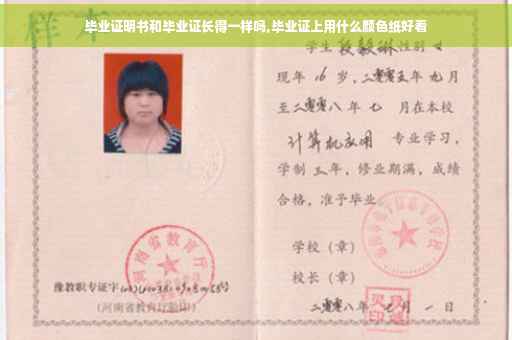 毕业证明书和毕业证长得一样吗,毕业证上用什么颜色纸好看
样本
学生 段毅琳 性别 女
现年 16 岁,二零零五年 九月
至二零零八年 七 月在本校
计算机应用 专业学习,
学制 三 年,修业期满,成绩
合格,准予毕业
学校(章)
校长(章)
二零零八年 七 月 一 日
河南省教育厅
豫教职专证字
(河南省教育厅验印)